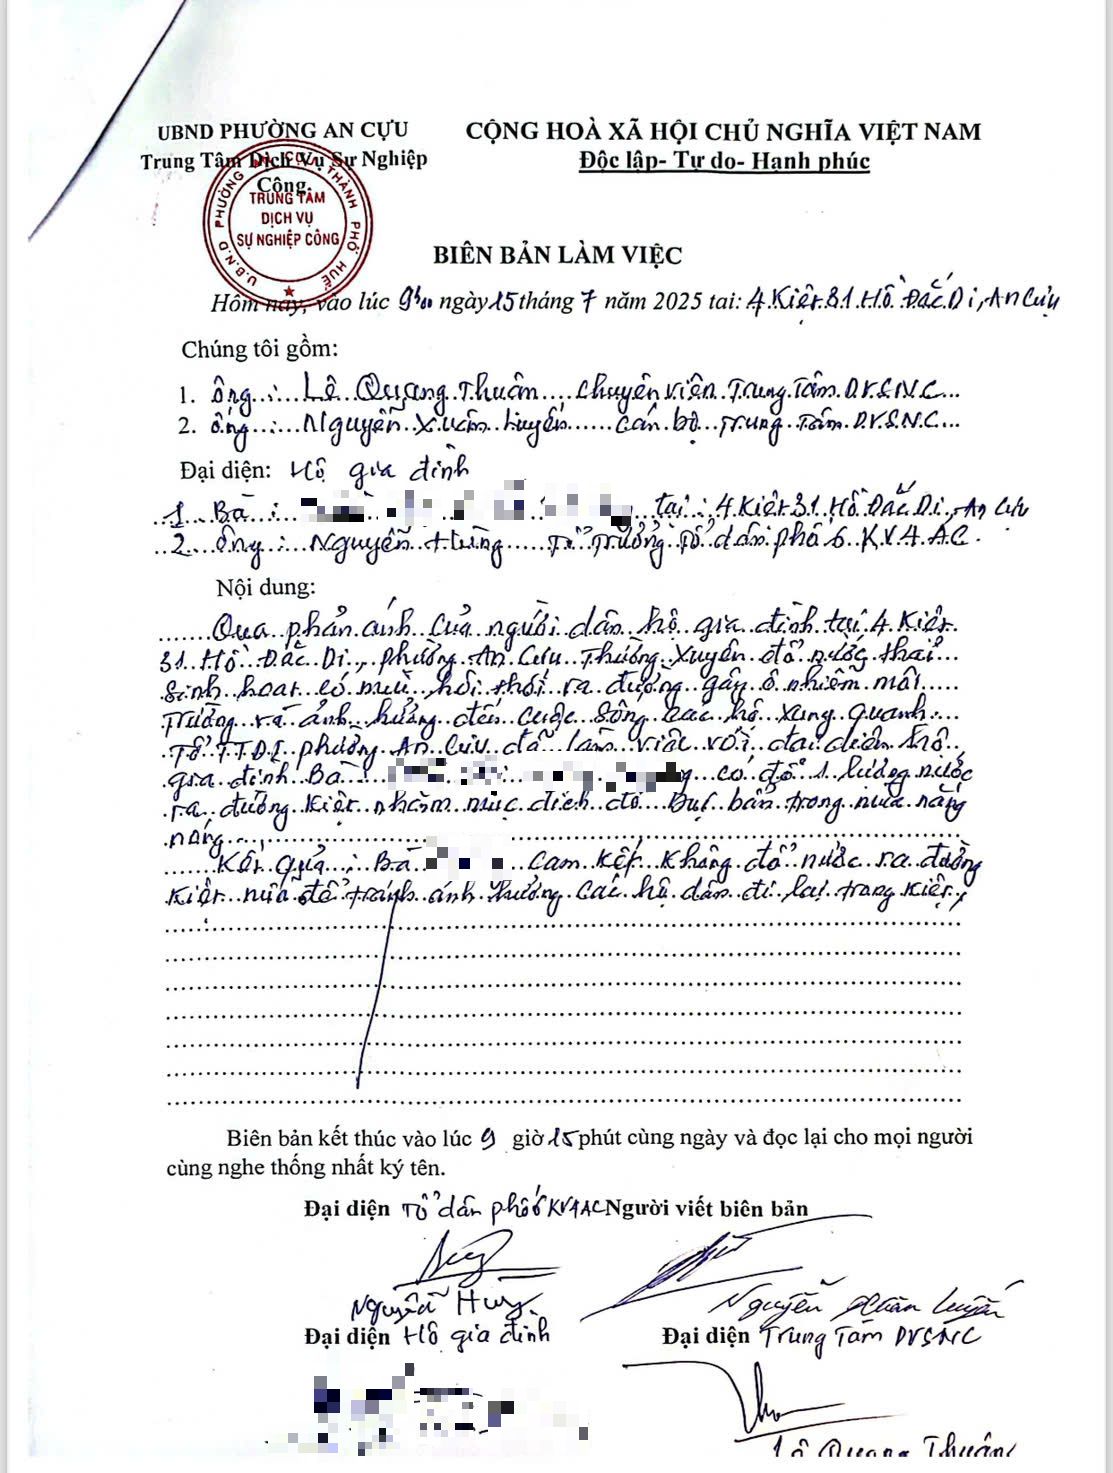 UBND PHƯỜNG AN CỰU
Trung Tâm Dịch Vụ Sự Nghiệp
Công
CỘNG HOÀ XÃ HỘI CHỦ NGHĨA VIỆT NAM
Độc lập- Tự do- Hạnh phúc
U.B.N.D PHƯỜNG AN CỰU THÀNH PHỐ HUẾ
TRUNG TÂM
DỊCH VỤ
SỰ NGHIỆP CÔNG
BIÊN BẢN LÀM VIỆC
Hôm nay, vào lúc 9h00 ngày 15 tháng 7 năm 2025 tai: 4 Kiệt 31 Hồ Đắc Di, An Cựu
Chúng tôi gồm:
1. ông : Lê Quang Thuân, chuyên viên Trung Tâm D.V.S.N.C
2. ông : Nguyễn Xuân Luyến cán bộ Trung Tâm D.V.S.N.C
Đại diện: Hộ gia đình
1. Bà : tại: 4 Kiệt 31 Hồ Đắc Di, An Cựu
2. ông : Nguyễn Hùng Tổ Trưởng Tổ dân phố 6 KV4 AC
Nội dung:
Qua phản ánh của người dân hộ gia đình tại 4 Kiệt
31 Hồ Đắc Di, phường An Cựu Thường xuyên đổ nước thải
sinh hoạt có mùi hôi thối ra đường gây ô nhiễm môi
Trường và ảnh hưởng đến cuộc sống các hộ xung quanh.
Tổ phường An Cựu đã làm việc với đại diện hộ
gia đình Bà có đổ 1 lượng nước
ra đường Kiệt nhằm mục đích đỡ bụi bẩn trong mùa nắng
nóng
Kết quả : Bà cam kết không đổ nước ra đường
Kiệt nữa để tránh ảnh hưởng các hộ dân đi lại trong Kiệt.
Biên bản kết thúc vào lúc 9 giờ 15 phút cùng ngày và đọc lại cho mọi người
cùng nghe thống nhất ký tên.
Đại diện Tổ dân phố 6 KV4AC Người viết biên bản
Nguyễn Nguyễn Xuân Luyến
Đại diện Hộ gia đình Đại diện Trung Tâm DVSNC
Lê Quang Thuân